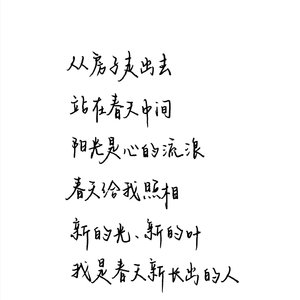 从房子走出去
站在春天中间
阳光是心的流浪
春天给我照相
新的光、新的叶
我是春天新长出的人